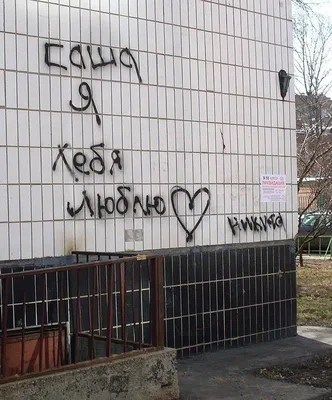 саша
я
тебя
люблю
никита